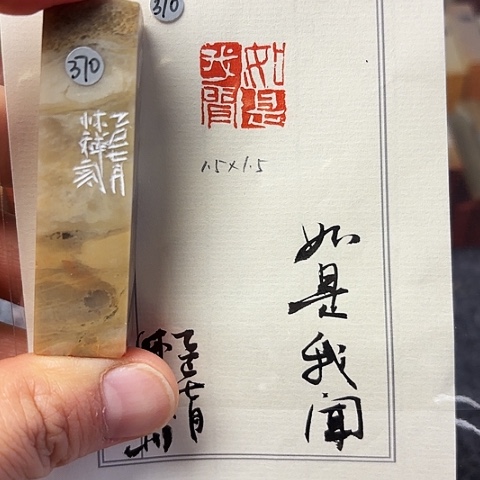 370
310
乙巳七月
林禕刻
如是
我聞
1.5×1.5
如是我聞
乙巳七月